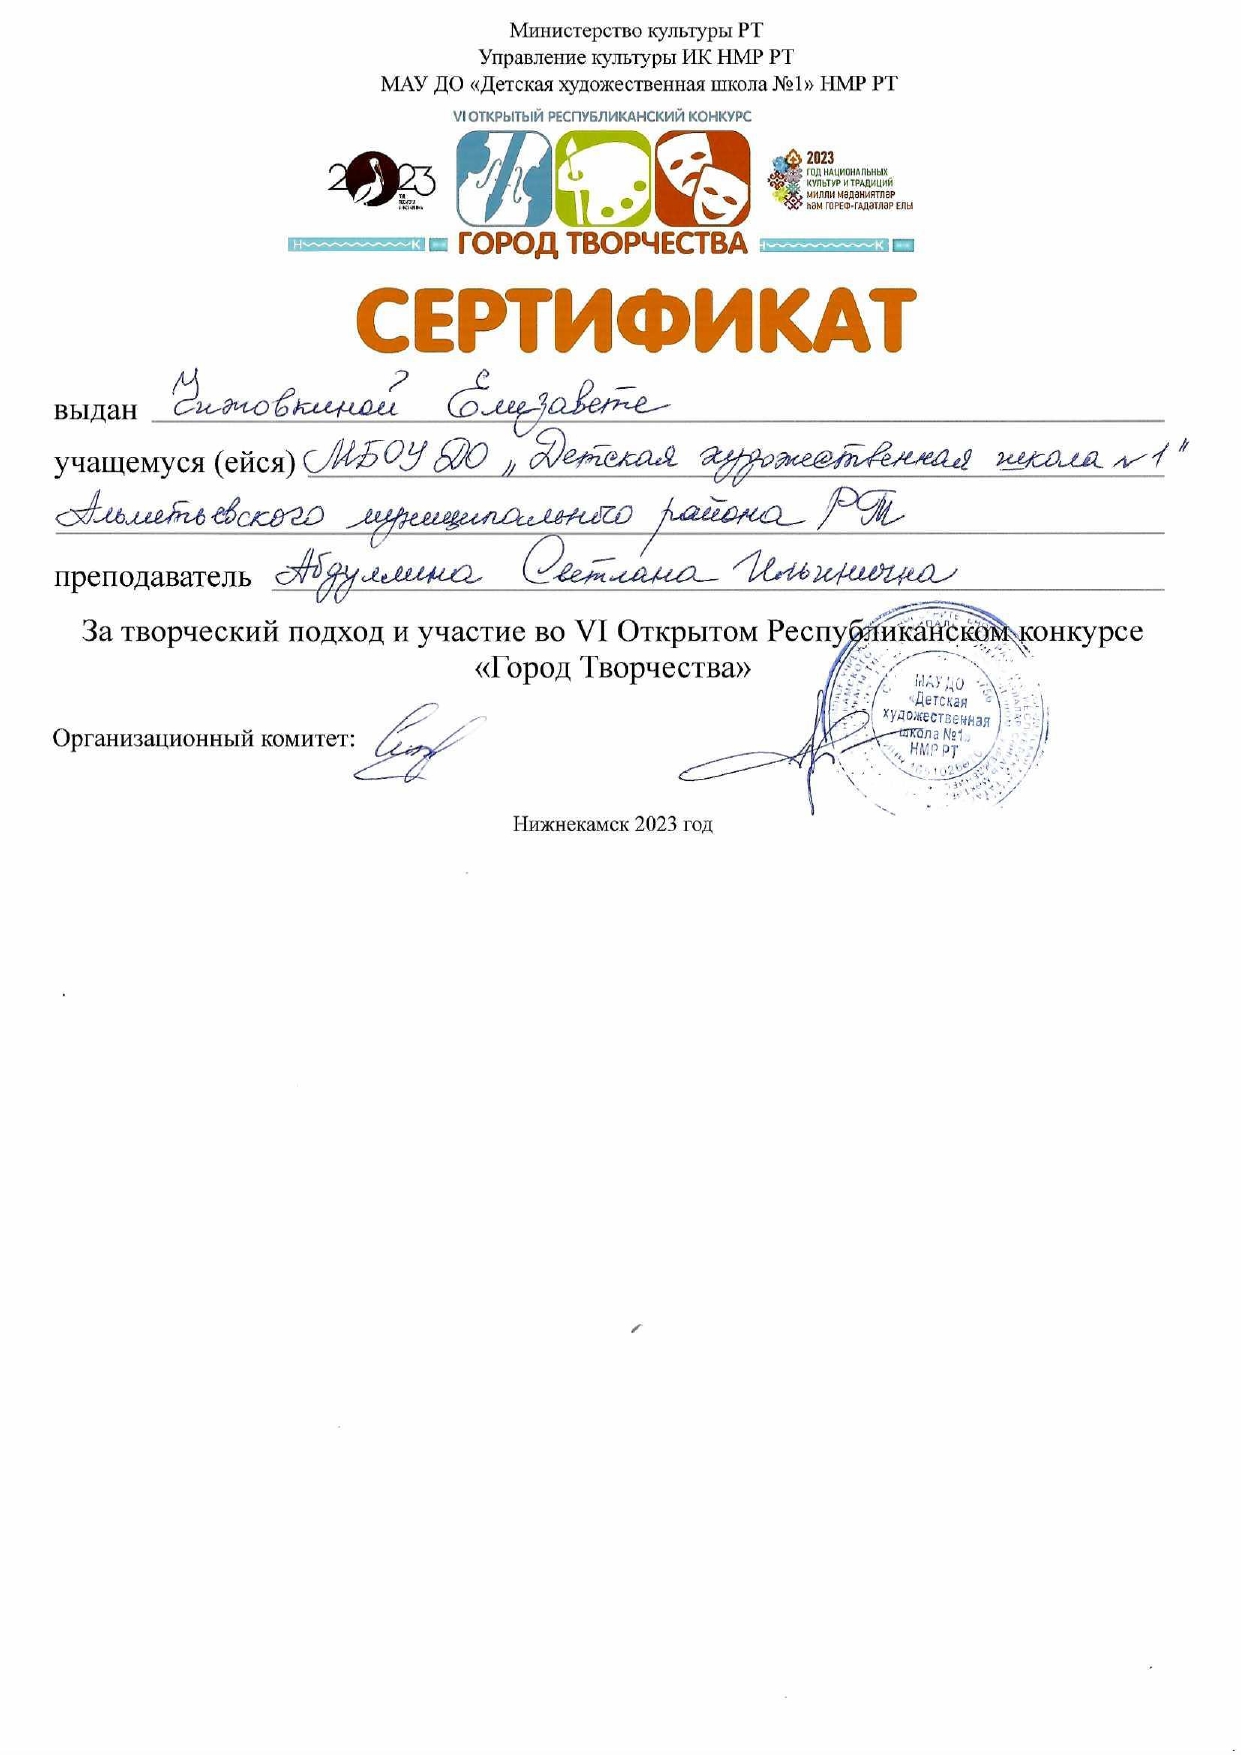 Министерство культуры РТ
Управление культуры ИК НМР РТ
МАУ ДО «Детская художественная школа №1» НМР РТ
VI ОТКРЫТЫЙ РЕСПУБЛИКАНСКИЙ КОНКУРС
2023
2023
ГОД НАЦИОНАЛЬНЫХ
КУЛЬТУР И ТРАДИЦИЙ
МИЛЛИ МӘДӘНИЯТЛӘР
ҺӘМ ГОРЕФ-ГАДӘТЛӘР ЕЛЫ
Н К ГОРОД ТВОРЧЕСТВА Н К
СЕРТИФИКАТ
выдан Чижовкиной Елизавете
учащемуся (ейся) МБОУ ДО „Детская художественная школа №1"
Альметьевского муниципального района РТ
преподаватель Абдуллина Светлана Ильинична
За творческий подход и участие во VI Открытом Республиканском конкурсе
«Город Творчества»
МАУ ДО
«Детская
художественная
школа №1»
НМР РТ
Организационный комитет:
Нижнекамск 2023 год